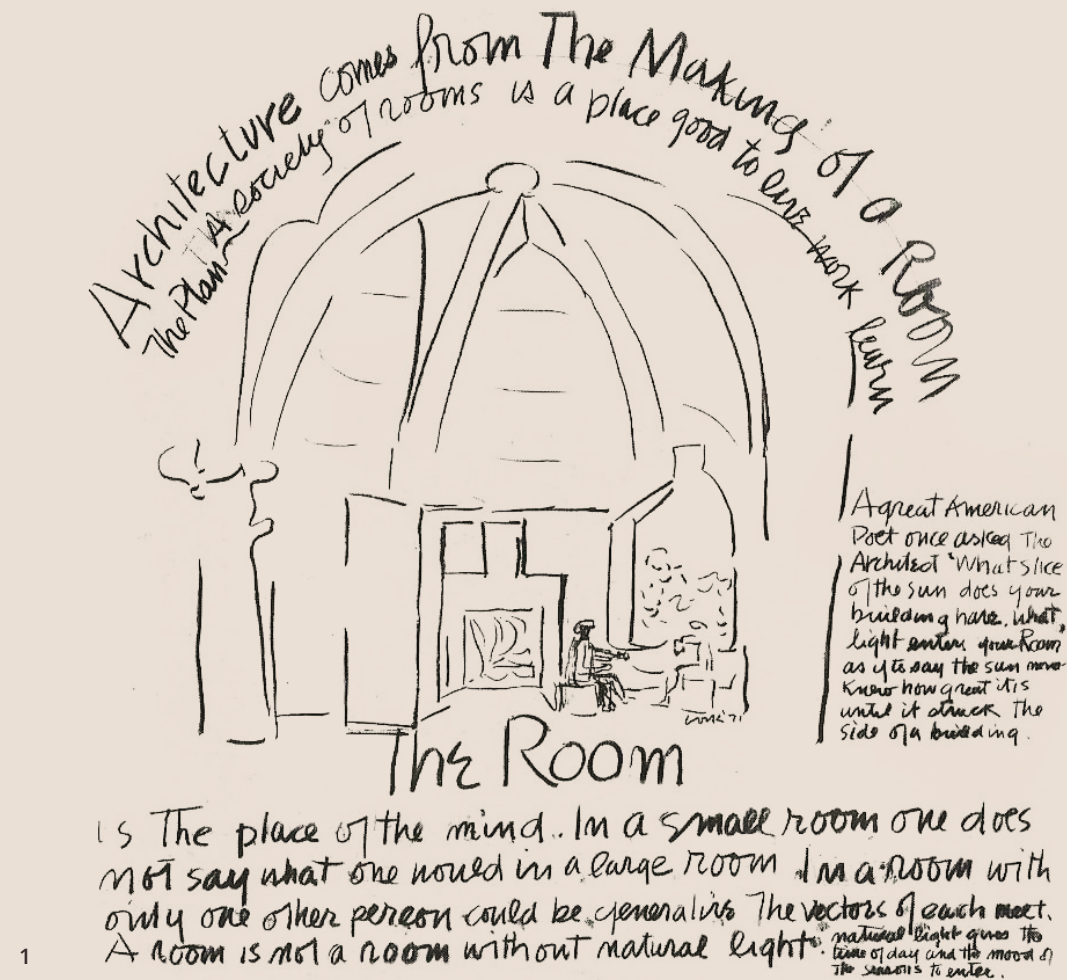 Architecture comes from The Making of a Room
The Plan A society of rooms is a place good to live work learn
A great American
Poet once asked The
Architect 'What slice
of the sun does your
building have, what,
light enters your Room
as if to say the sun never
knew how great it is
until it struck the
side of a building.
The Room
is The place of the mind. In a small room one does
not say what one would in a large room In a room with
only one other person could be generative The vectors of each meet.
A room is not a room without natural light.
natural light gives the
time of day and the mood of
the seasons to enter.
1